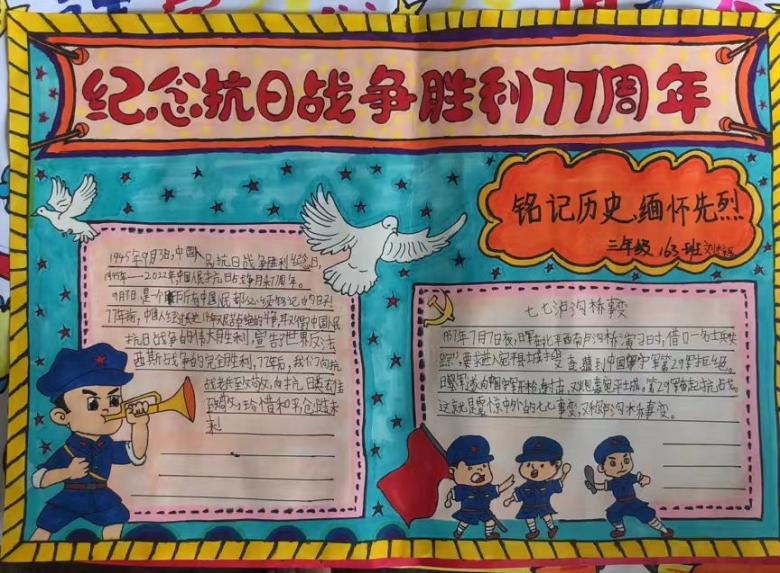 纪念抗日战争胜利77周年
铭记历史,缅怀先烈
三年级 163班
1945年9月3日,中国人民抗日战争胜利纪念日,
1945年——2022年,中国人民抗日战争胜利77周年。
9月3日,是一个所有中国人民都必须铭记的日子
77年前,中国人经过长达14年艰苦卓绝的斗争,取得中国人民
抗日战争的伟大胜利,宣告了世界反法
西斯战争的完全胜利,77年后,我们向抗
战老兵至敬,向抗日英雄
致敬,珍惜和平,创造未
来!
七七泸沟桥事变
1937年7月7日夜,日军在北平西南卢沟桥演习时,借口一名士兵失
踪",要求进入宛平县城搜查,遭到中国守军第29军拒绝。
日军向中国守军开枪射击,炮轰宛平城,第29军奋起抗战。
这就是震惊中外的七七事变,又称泸沟桥事变。